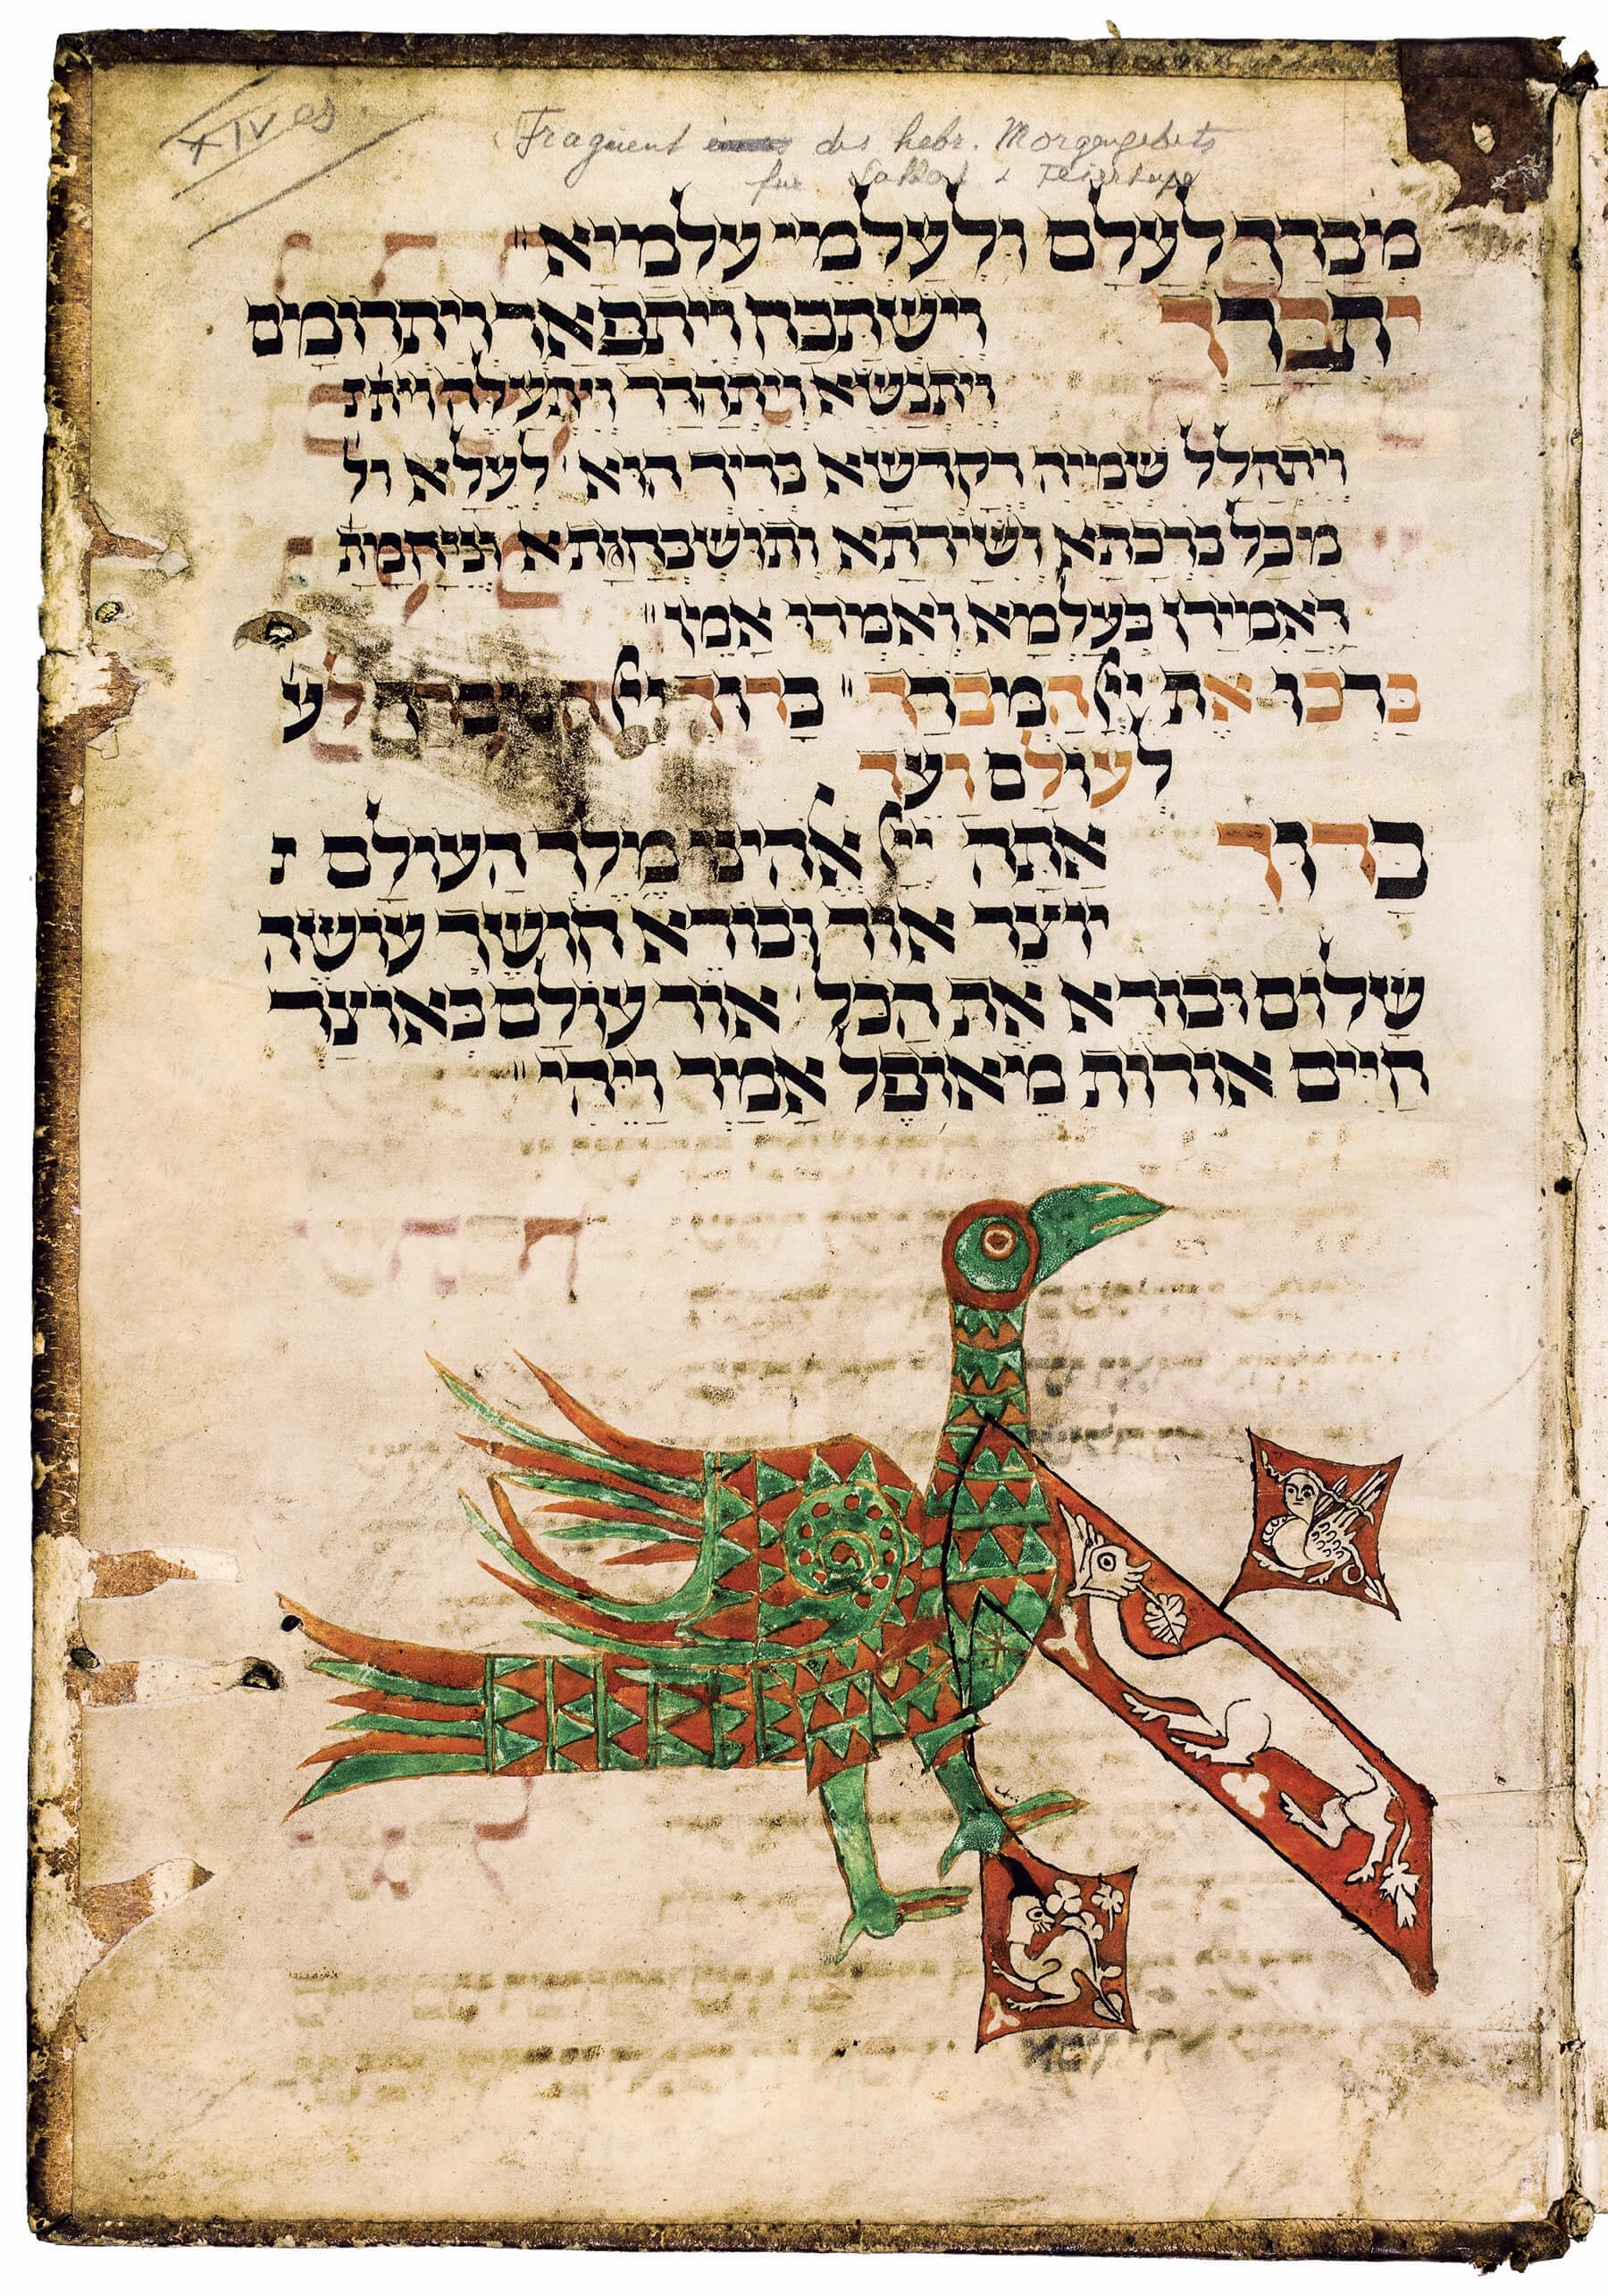 XIV es.
Fragment des hebr. Morgengebets
für Sabbat & Feiertage
מְבָרַךְ לְעָלַם וּלְעָלְמֵי עָלְמַיָא
יִתְבָּרַךְ וְיִשְׁתַּבַּח וְיִתְפָּאַר וְיִתְרוֹמַם
וְיִתְנַשֵּׂא וְיִתְהַדַּר וְיִתְעַלֶּה וית
וְיִתְהַלָּל שְׁמֵיהּ דְקֻדְשָׁא בְּרִיךְ הוּא לְעֵלָּא ול
מִכָּל בִּרְכָתָא וְשִׁירָתָא וְתוּשְׁבְּחָתָא וְנֶיחָמָתָ
דַּאֲמִירָן בְּעָלְמָא וְאִמְרוּ אָמֵן
בָּרְכוּ אֶת ייָ הַמְבֹרָךְ בָּרוּךְ ייָ הַמְבֹרָךְ לְע
לְעוֹלָם וָעֶד
בָּרוּךְ אַתָּה ייָ אֱלֹהֵינוּ מֶלֶךְ הָעוֹלָם י
יוֹצֵר אוֹר וּבוֹרֵא חוֹשֶׁךְ עוֹשֶׂה
שָׁלוֹם וּבוֹרֵא אֶת הַכֹּל אוֹר עוֹלָם בְּאוֹצַר
חַיִּים אוֹרוֹת מֵאוֹפֶל אָמַר וַיֶּהִי